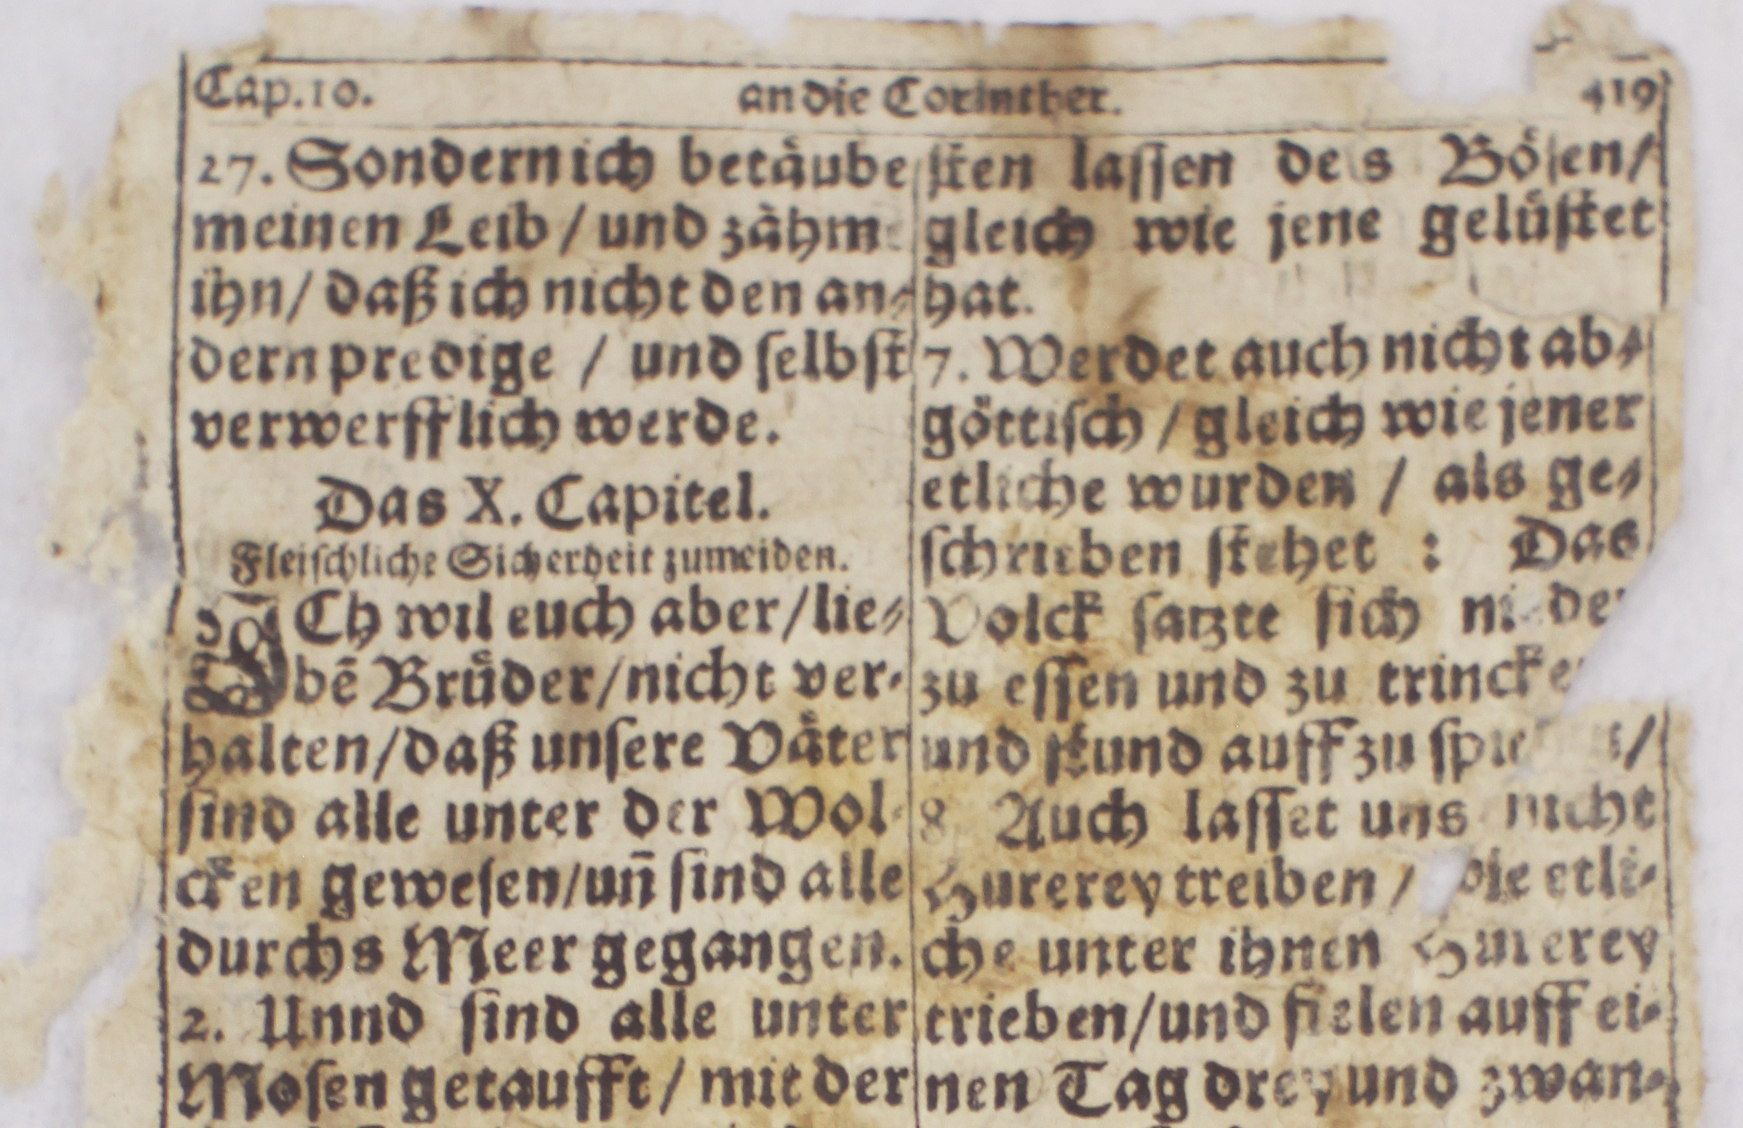 Cap. 10. an die Corinther. 419
27. Sondern ich betäube
meinen Leib / und zähm
ihn / daß ich nicht den an-
dern predige / und selbst
verwerfflich werde.
Das X. Capitel.
Fleischliche Sicherheit zumeiden.
ICh wil euch aber / lie-
bē Brüder / nicht ver-
halten / daß unsere Väter
sind alle unter der Wol-
cken gewesen / uñ sind alle
durchs Meer gegangen.
2. Unnd sind alle unter
Mosen getaufft / mit der
sten lassen des Bösen /
gleich wie jene gelüstet
hat.
7. Werdet auch nicht ab-
göttisch / gleich wie jener
etliche wurden / als ge-
schrieben stehet : Das
Volck satzte sich nider
zu essen und zu trincken
und stund auff zu /
8 Auch lasset uns nicht
Hurerey treiben / wie etli-
che unter ihnen Hurerey
trieben / und fielen auff ei-
nen Tag drey und zwan-